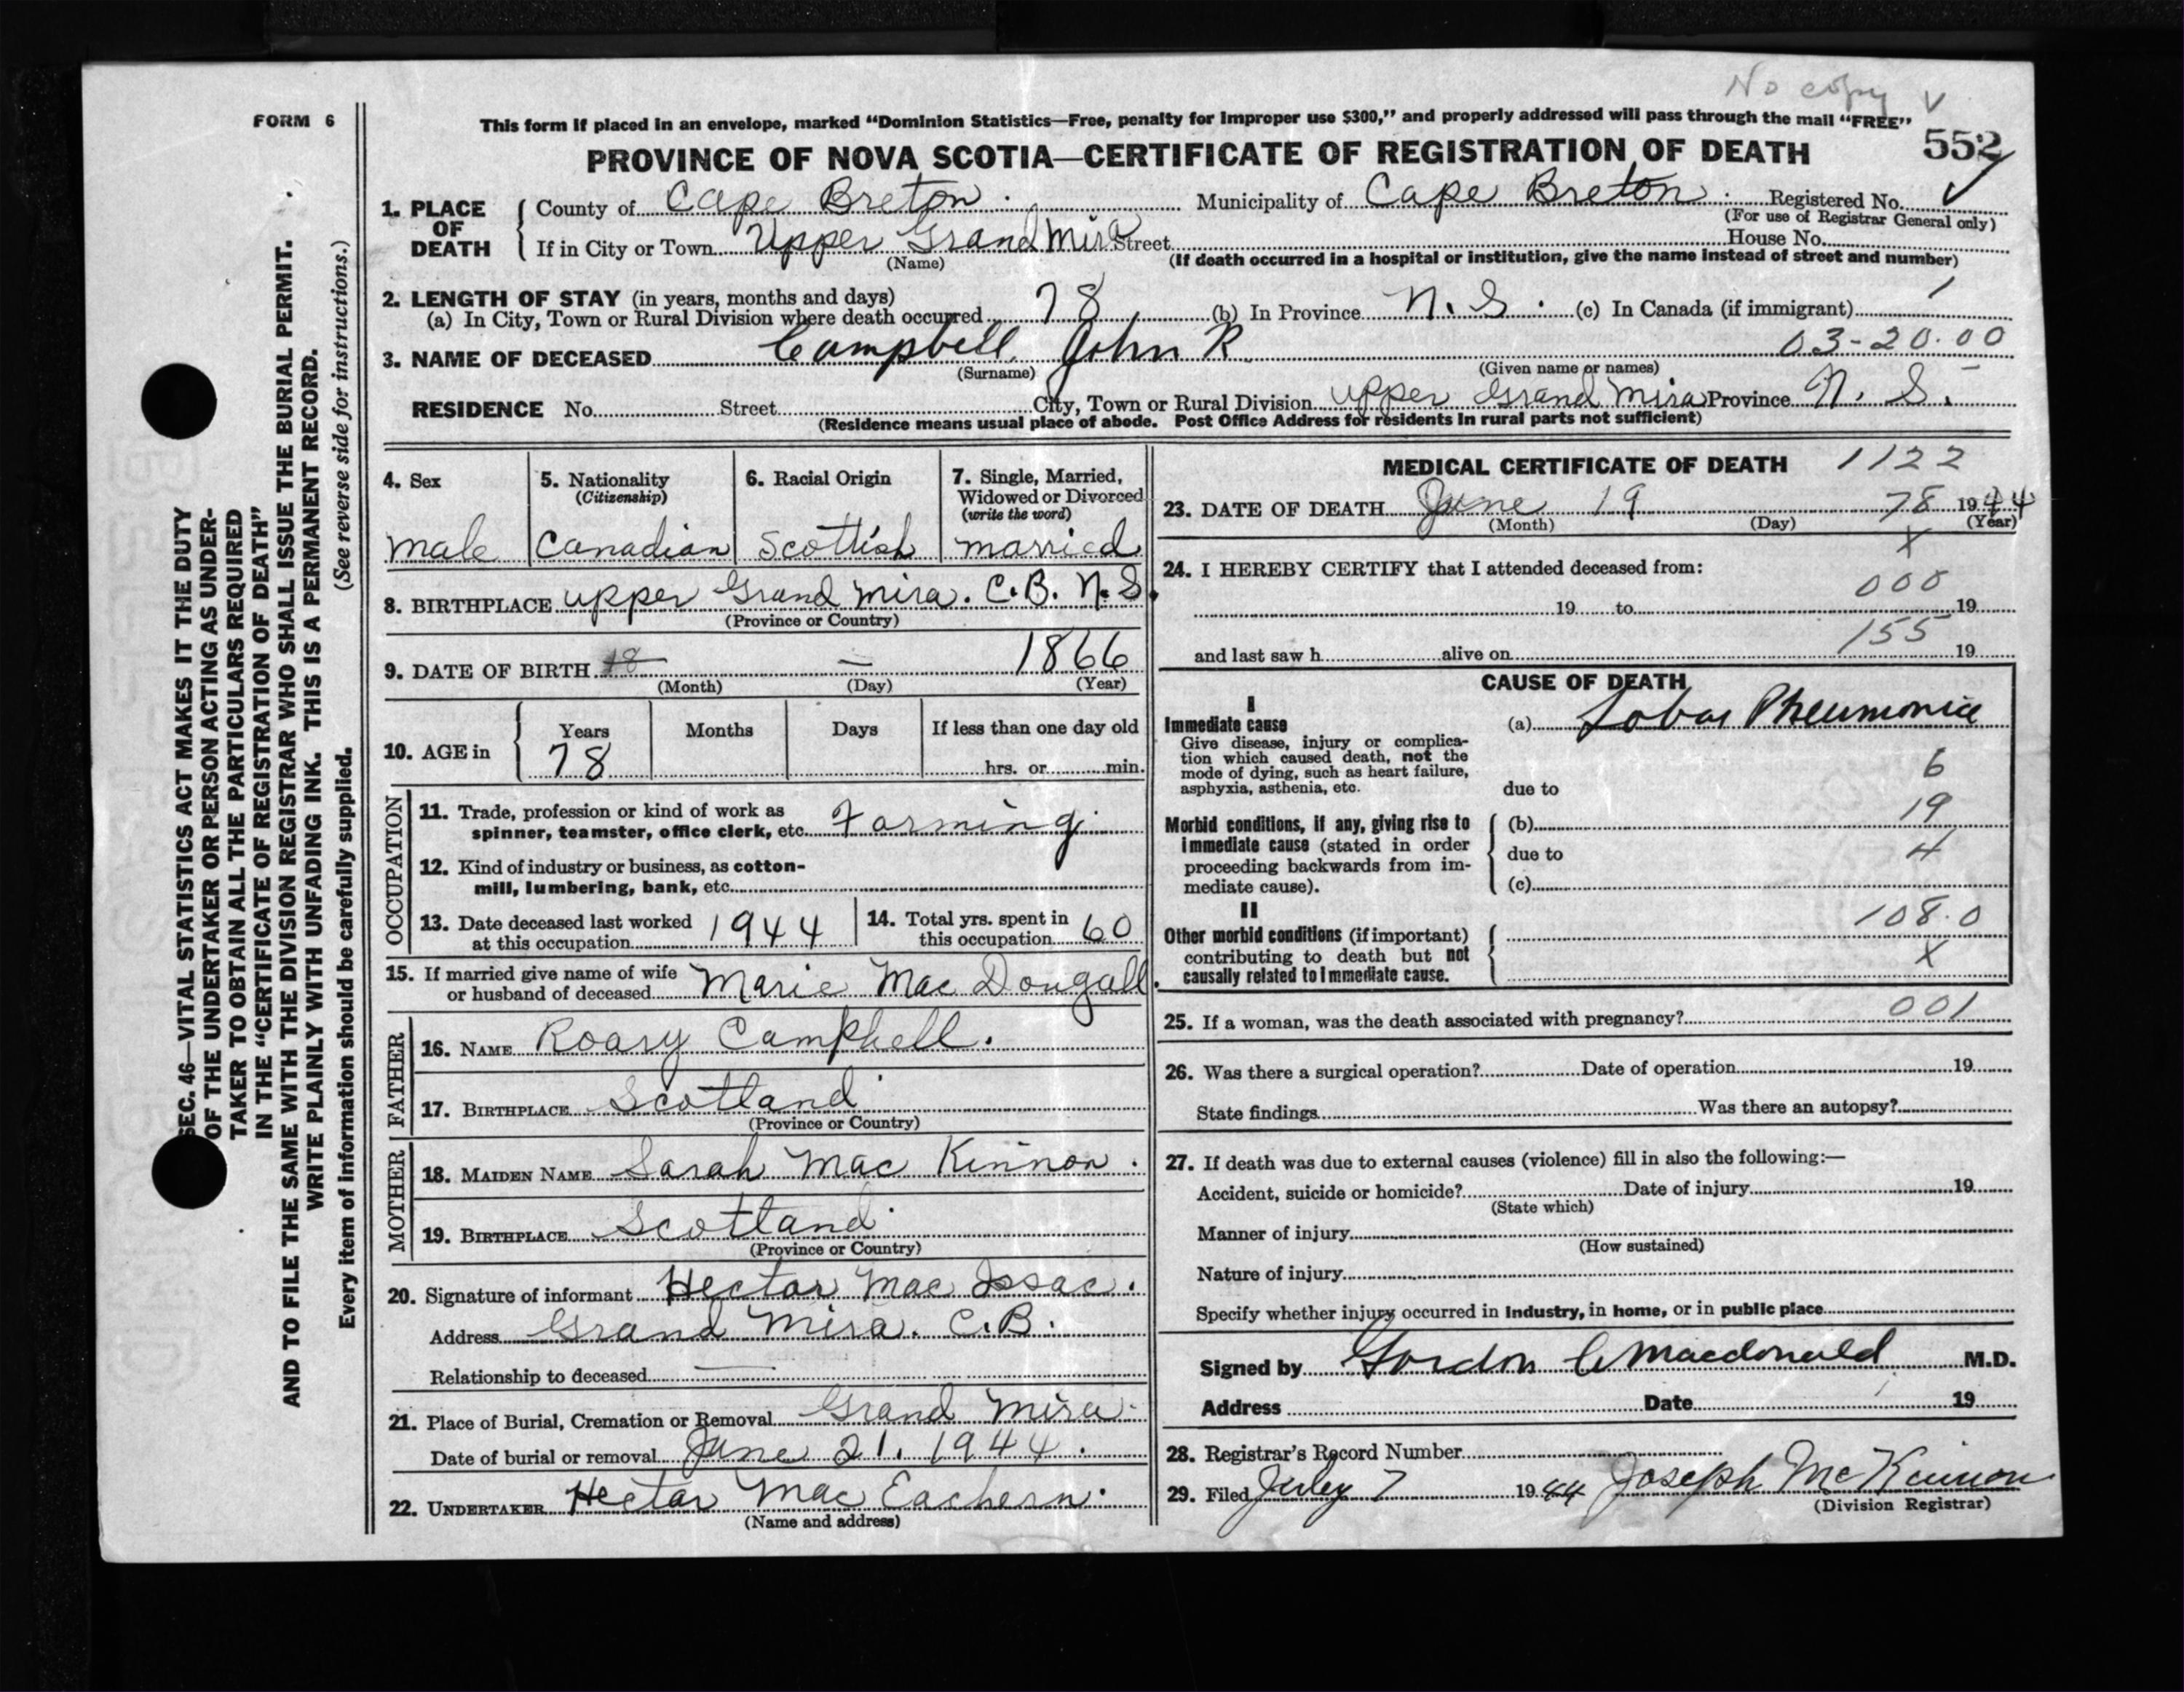 No copy √
FORM 6
This form if placed in an envelope, marked “Dominion Statistics—Free, penalty for improper use $300,” and properly addressed will pass through the mail “FREE”
PROVINCE OF NOVA SCOTIA—CERTIFICATE OF REGISTRATION OF DEATH 552
1. PLACE OF DEATH { County of Cape Breton Municipality of Cape Breton Registered No. ✓
(For use of Registrar General only)
If in City or Town Upper Grand Mira Street House No.
(Name) (If death occurred in a hospital or institution, give the name instead of street and number)
2. LENGTH OF STAY (in years, months and days)
(a) In City, Town or Rural Division where death occurred 78 (b) In Province N.S. (c) In Canada (if immigrant) 1
3. NAME OF DECEASED Campbell John R 03-20.00
(Surname) (Given name or names)
RESIDENCE No. Street City, Town or Rural Division Upper Grand Mira Province N.S.
(Residence means usual place of abode. Post Office Address for residents in rural parts not sufficient)
4. Sex
male
5. Nationality
(Citizenship)
Canadian
6. Racial Origin
Scottish
7. Single, Married,
Widowed or Divorced
(write the word)
married
8. BIRTHPLACE upper Grand Mira. C.B. N.S.
(Province or Country)
9. DATE OF BIRTH 18 — 1866
(Month) (Day) (Year)
10. AGE in { Years Months Days If less than one day old
78 hrs. or min.
OCCUPATION
11. Trade, profession or kind of work as
spinner, teamster, office clerk, etc. Farming
12. Kind of industry or business, as cotton-
mill, lumbering, bank, etc.
13. Date deceased last worked
at this occupation 1944
14. Total yrs. spent in
this occupation 60
15. If married give name of wife
or husband of deceased Marie Mac Dougall.
FATHER
16. NAME Roary Campbell.
17. BIRTHPLACE Scotland
(Province or Country)
MOTHER
18. MAIDEN NAME Sarah Mac Kinnon.
19. BIRTHPLACE Scotland
(Province or Country)
20. Signature of informant Hector Mac Issac.
Address Grand Mira. C.B.
Relationship to deceased —
21. Place of Burial, Cremation or Removal Grand Mira
Date of burial or removal June 21. 1944.
22. UNDERTAKER Hector Mac Eachern.
(Name and address)
MEDICAL CERTIFICATE OF DEATH 1122
23. DATE OF DEATH June 19 78 1944
(Month) (Day) (Year)
X
24. I HEREBY CERTIFY that I attended deceased from:
000
19 to 19
155
and last saw h alive on 19
CAUSE OF DEATH
I
Immediate cause (a) Lobar Pneumonia
Give disease, injury or complica-
tion which caused death, not the
mode of dying, such as heart failure,
asphyxia, asthenia, etc.
6
due to
19
Morbid conditions, if any, giving rise to
immediate cause (stated in order
proceeding backwards from im-
mediate cause).
{ (b)
due to 4
(c)
II
Other morbid conditions (if important)
contributing to death but not
causally related to immediate cause.
108.0
X
25. If a woman, was the death associated with pregnancy? 001
26. Was there a surgical operation? Date of operation 19
State findings Was there an autopsy?
27. If death was due to external causes (violence) fill in also the following:—
Accident, suicide or homicide? Date of injury 19
(State which)
Manner of injury
(How sustained)
Nature of injury
Specify whether injury occurred in industry, in home, or in public place
Signed by Gordon C Macdonald M.D.
Address Date 19
28. Registrar's Record Number
29. Filed July 7 1944 Joseph McKinnon
(Division Registrar)
SEC. 46—VITAL STATISTICS ACT MAKES IT THE DUTY
OF THE UNDERTAKER OR PERSON ACTING AS UNDER-
TAKER TO OBTAIN ALL THE PARTICULARS REQUIRED
IN THE “CERTIFICATE OF REGISTRATION OF DEATH”
AND TO FILE THE SAME WITH THE DIVISION REGISTRAR WHO SHALL ISSUE THE BURIAL PERMIT.
WRITE PLAINLY WITH UNFADING INK. THIS IS A PERMANENT RECORD.
Every item of information should be carefully supplied. (See reverse side for instructions.)